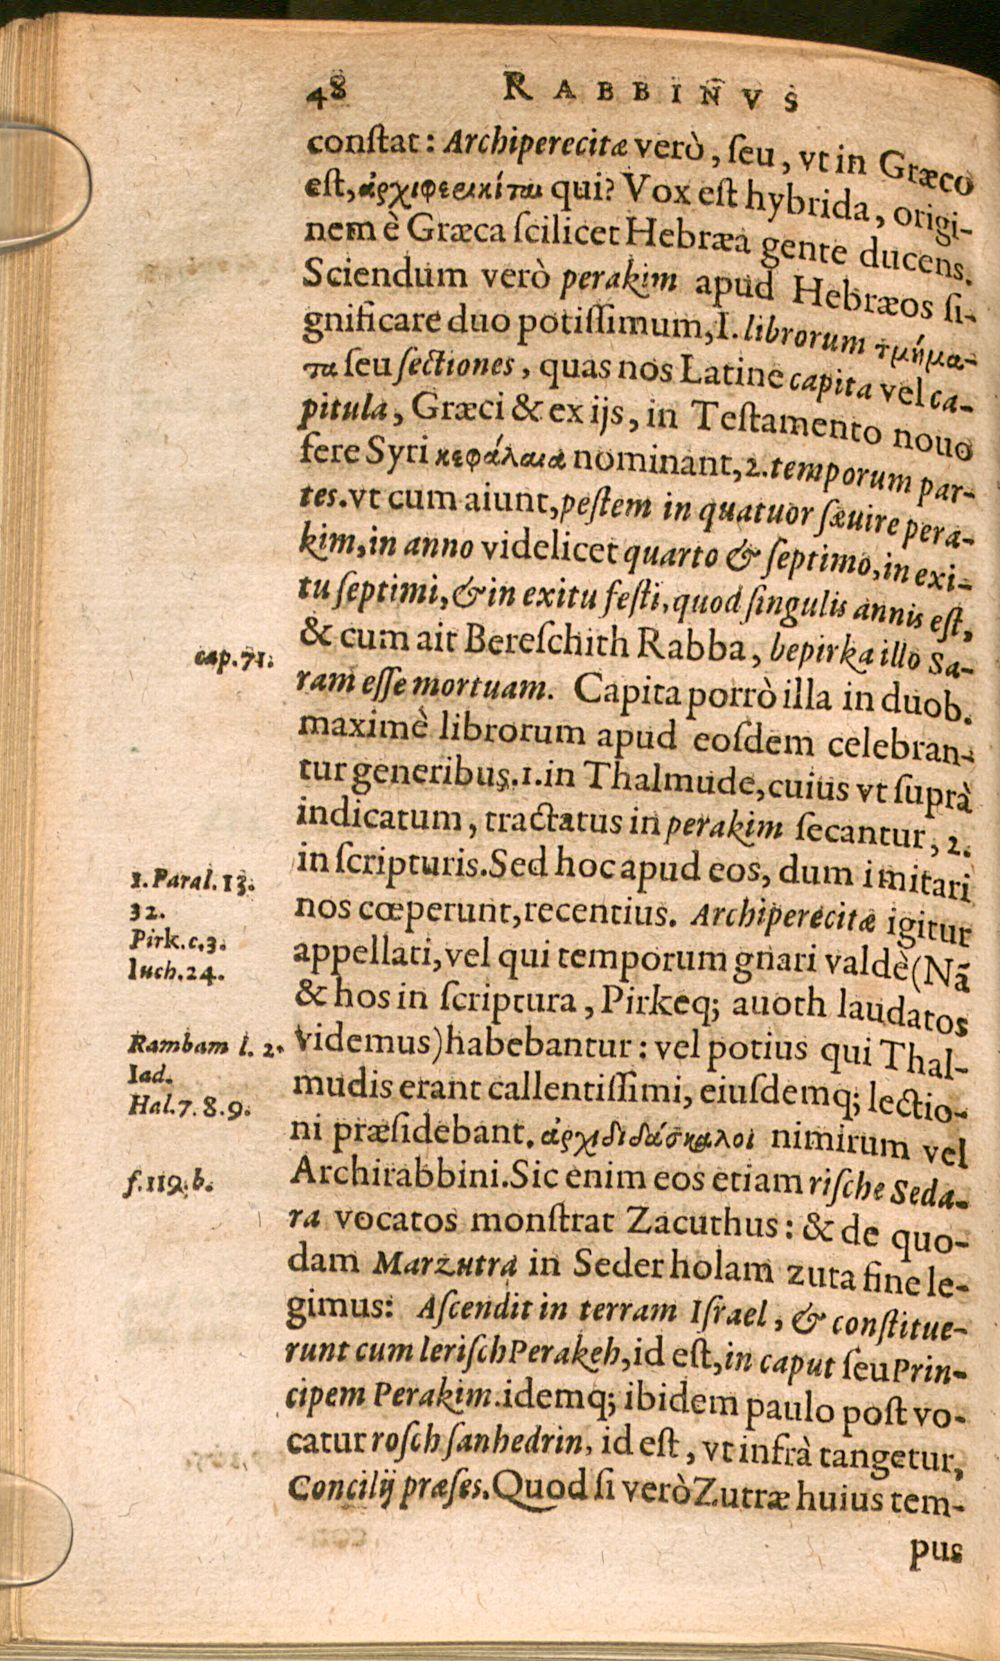 48 RABBINVS
conſtat: Archiperecitæ verò, ſeu, vt in Græco
eſt, ἀρχιφερεκίται qui? Vox eſt hybrida, origi-
nem è Græca ſcilicet Hebræa gente ducens.
Sciendum verò perakim apud Hebræos ſi-
gnificare duo potiſſimum, I. librorum τμήμα-
τα ſeu ſectiones, quas nos Latine capita vel ca-
pitula, Græci & ex ijs, in Teſtamento nouo
fere Syri κεφάλαια nominant, 2. temporum par-
tes. vt cum aiunt, peſtem in quatuor ſæuire pera-
kim, in anno videlicet quarto & ſeptimo, in exi-
tu ſeptimi, & in exitu feſti, quod ſingulis annis eſt,
& cum ait Bereſchith Rabba, bepirka illo Sa-
cap. 71.
ram eſſe mortuam. Capita porrò illa in duob.
maximè librorum apud eoſdem celebran-
tur generibus. 1. in Thalmude, cuius vt ſuprà
indicatum, tractatus in perakim ſecantur, 2.
in ſcripturis. Sed hoc apud eos, dum imitari
1. Paral. 13.
32.
nos cœperunt, recentius. Archiperecitæ igitur
Pirk. c. 3.
appellati, vel qui temporum gnari valdè (Nã
Iuch. 24.
& hos in ſcriptura, Pirkeq; auoth laudatos
videmus) habebantur: vel potius qui Thal-
Rambam l. 2.
Iad.
mudis erant callentiſſimi, eiuſdemq; lectio-
Hal. 7. 8. 9.
ni præſidebant. ἀρχιδιδάσκαλοι nimirum vel
Archirabbini. Sic enim eos etiam riſche Seda-
f. 119. b.
ra vocatos monſtrat Zacuthus: & de quo-
dam Marzutra in Seder holam zuta fine le-
gimus: Aſcendit in terram Iſrael, & conſtitue-
runt cum leriſch Perakeh, id eſt, in caput ſeu Prin-
cipem Perakim. idemq; ibidem paulo poſt vo-
catur roſch ſanhedrin, id eſt, vt infrà tangetur,
Concilij præſes. Quod ſi verò Zutræ huius tem-
pus